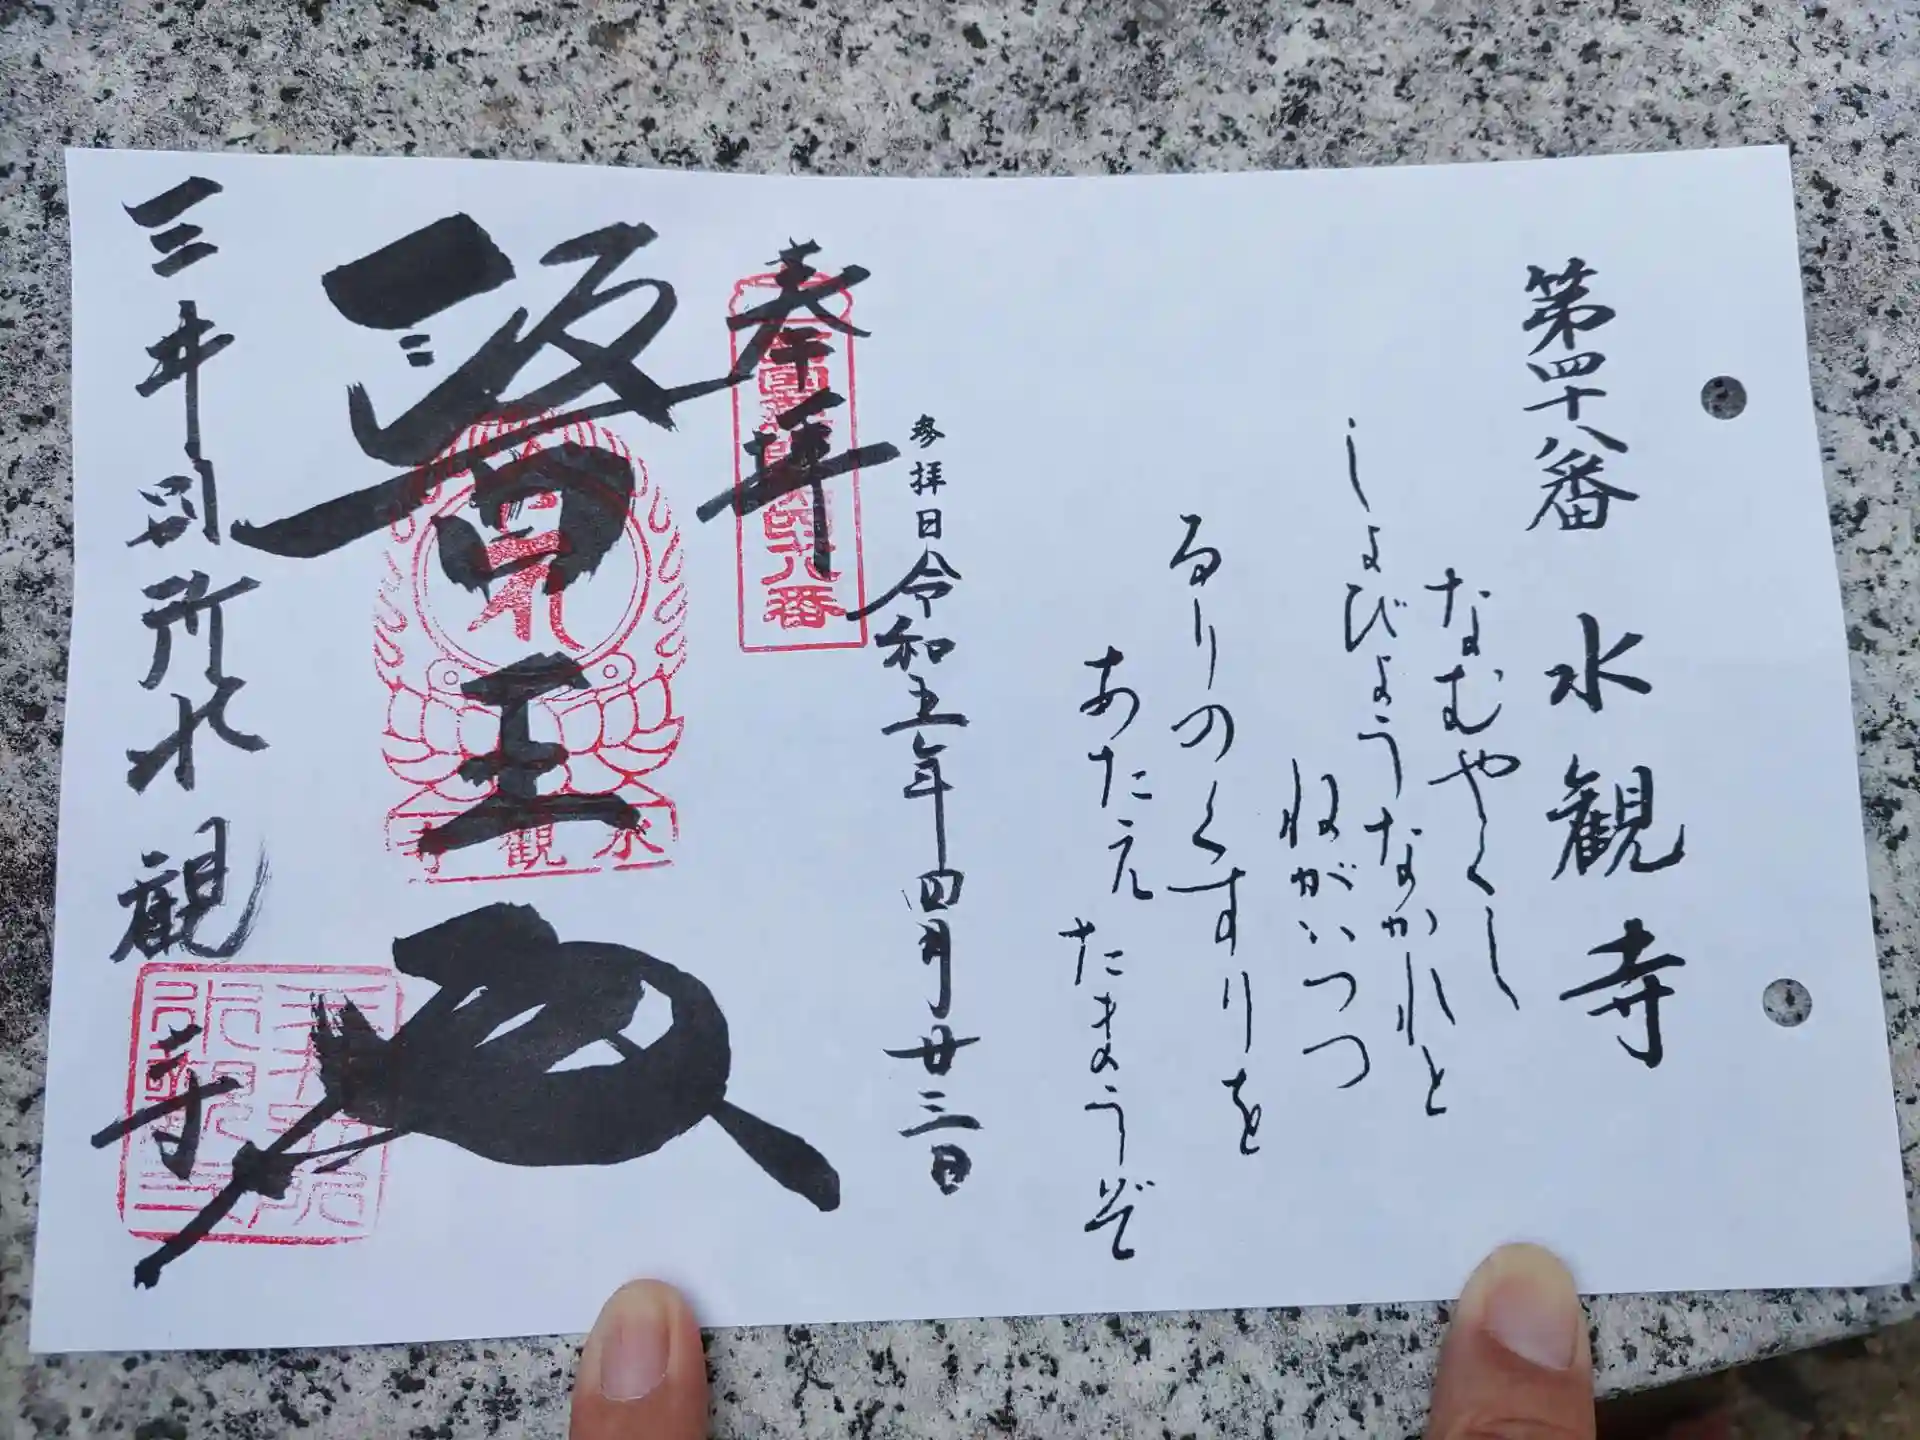 第四十八番 水観寺
なむやくし
しよびょうなかれと
ねがいつつ
るりのくすりを
あたえたまうぞ
参拝日令和五年四月廿三日
奉拝
西国薬師第四十八番
醫王殿
水観寺
三井別所水観寺